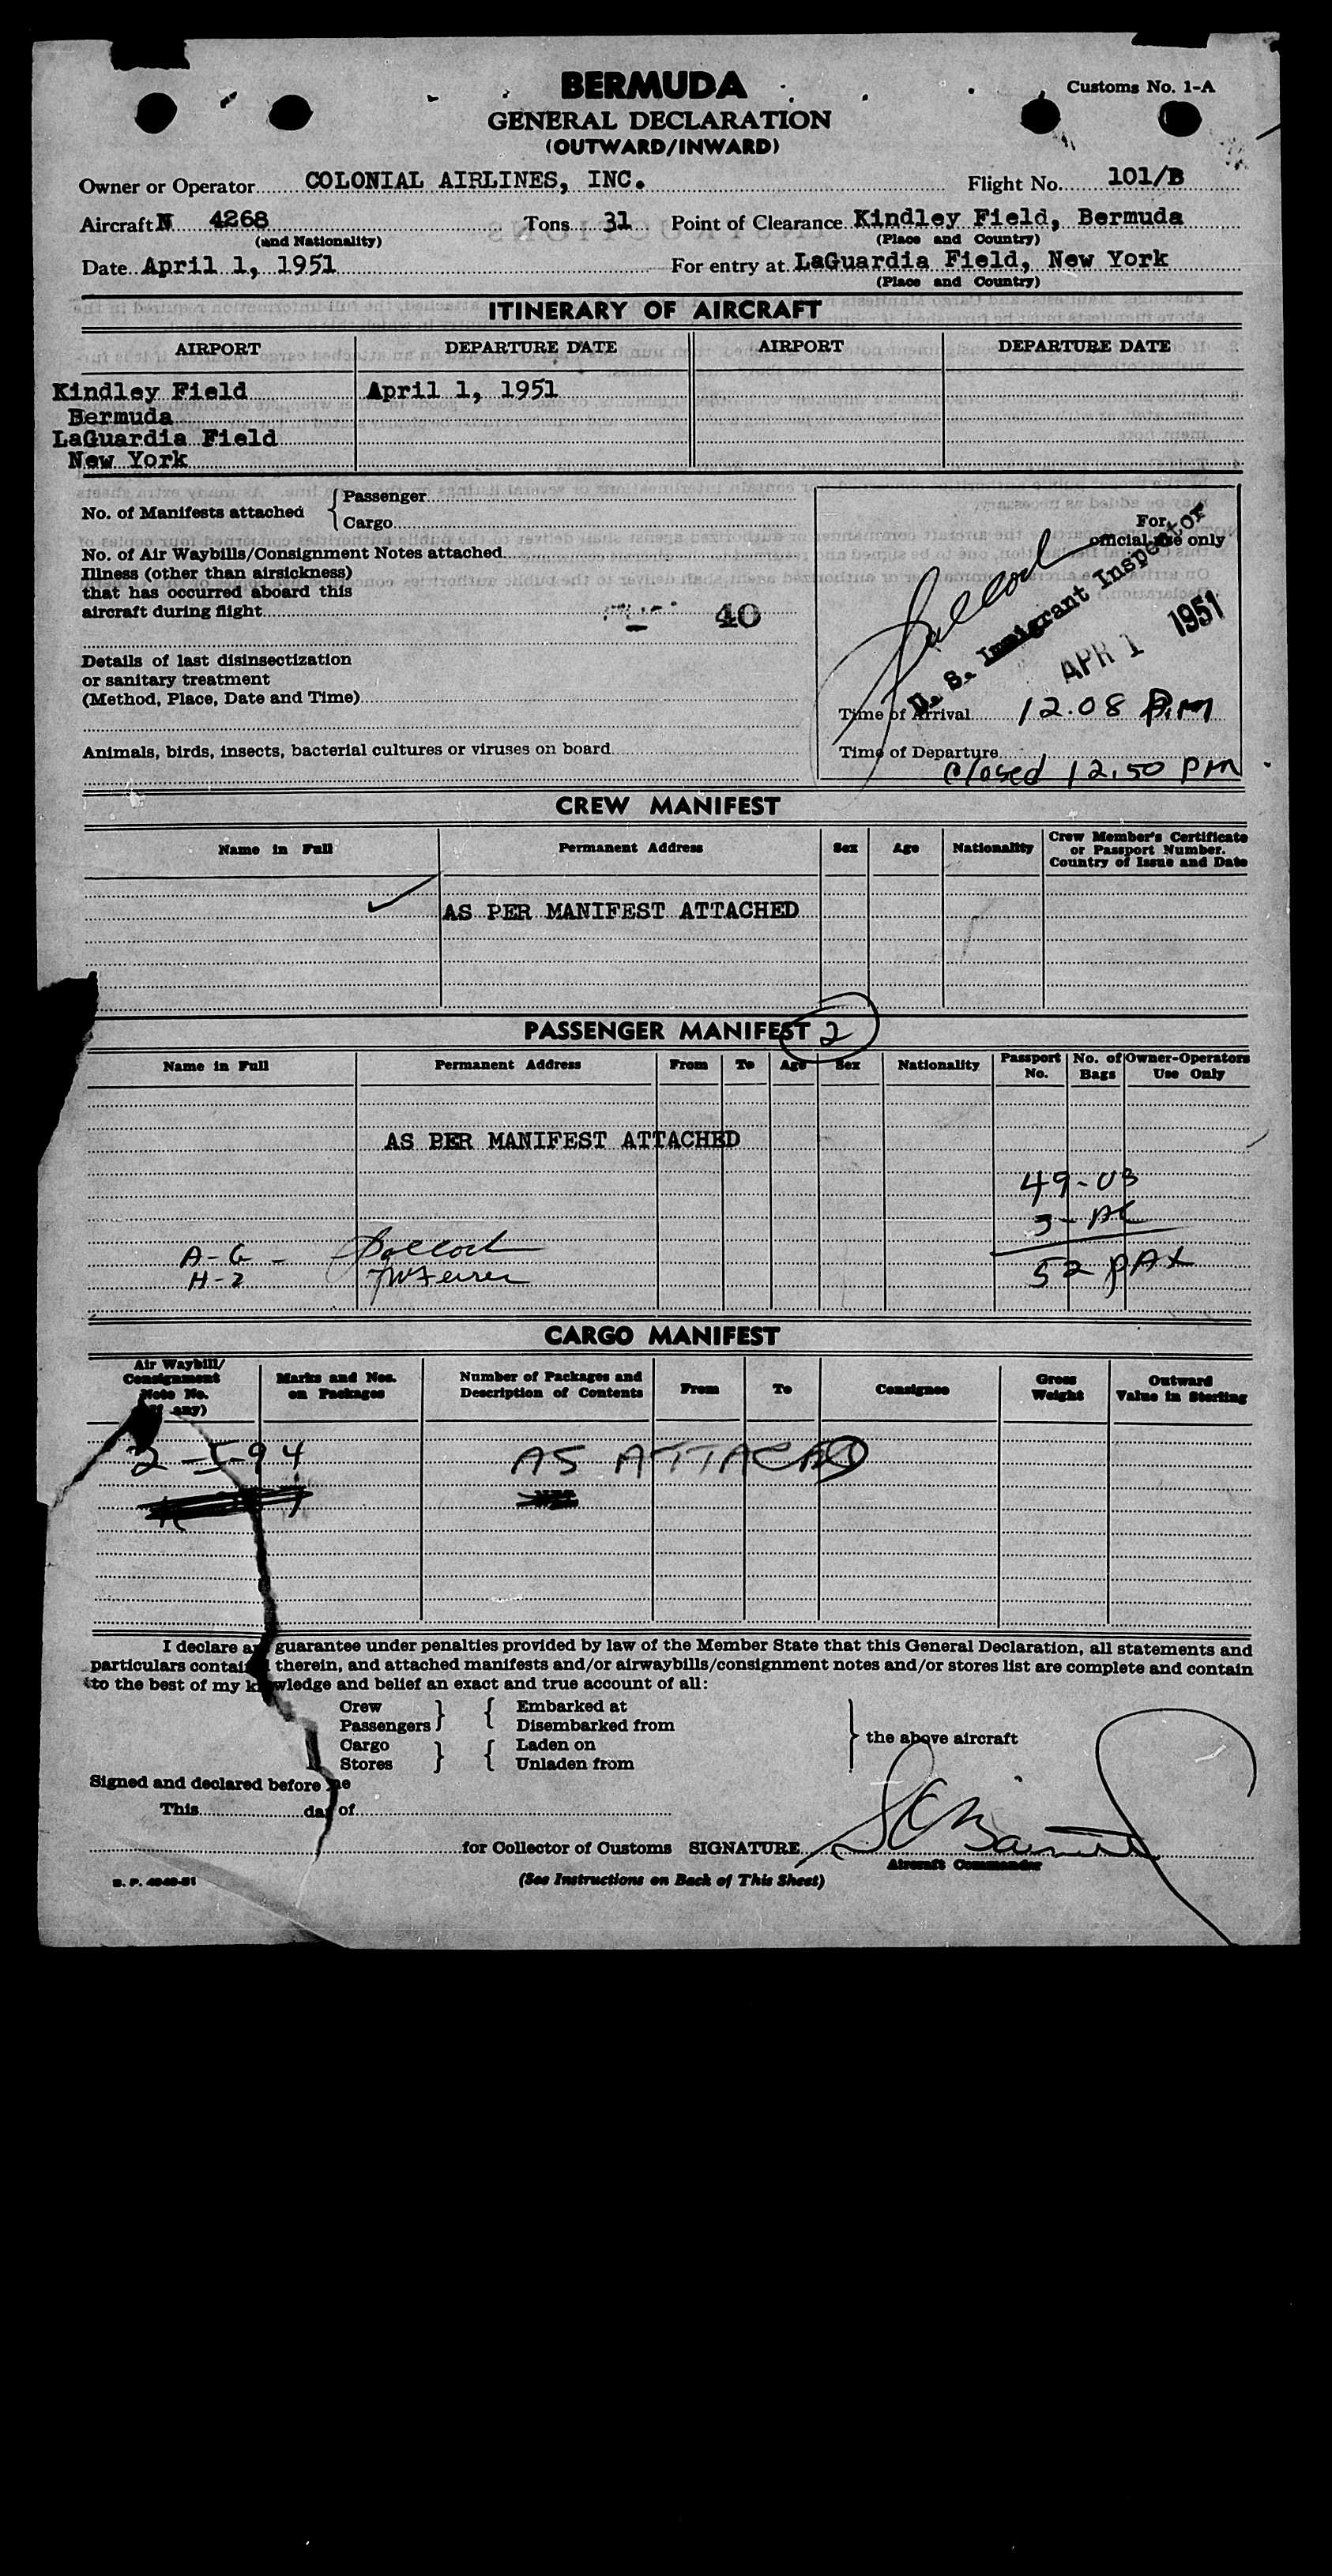 BERMUDA
Customs No. 1-A
GENERAL DECLARATION
(OUTWARD/INWARD)
Owner or Operator COLONIAL AIRLINES, INC. Flight No. 101/B
Aircraft N 4268 Tons 31 Point of Clearance Kindley Field, Bermuda
(and Nationality) (Place and Country)
Date April 1, 1951 For entry at LaGuardia Field, New York
(Place and Country)
ITINERARY OF AIRCRAFT
AIRPORT DEPARTURE DATE AIRPORT DEPARTURE DATE
Kindley Field April 1, 1951
Bermuda
LaGuardia Field
New York
No. of Manifests attached { Passenger
Cargo
For
official use only
No. of Air Waybills/Consignment Notes attached
Illness (other than airsickness)
that has occurred aboard this
aircraft during flight 40
U. S. Immigrant Inspector
APR 1 1951
Details of last disinsectization
or sanitary treatment
(Method, Place, Date and Time)
Time of Arrival 12.08 P.M
Animals, birds, insects, bacterial cultures or viruses on board
Time of Departure
Closed 12.50 PM
CREW MANIFEST
Name in Full Permanent Address Sex Age Nationality Crew Member's Certificate
or Passport Number.
Country of Issue and Date
AS PER MANIFEST ATTACHED
PASSENGER MANIFEST 2
Name in Full Permanent Address From To Age Sex Nationality Passport No. No. of Bags Owner-Operators Use Only
AS PER MANIFEST ATTACHED
49-
3-
A-G -
H-Z
52 PAX
CARGO MANIFEST
Air Waybill/ Consignment Note No. (if any) Marks and Nos. on Packages Number of Packages and Description of Contents From To Consignee Gross Weight Outward Value in Sterling
AS
I declare and guarantee under penalties provided by law of the Member State that this General Declaration, all statements and
particulars contained therein, and attached manifests and/or airwaybills/consignment notes and/or stores list are complete and contain
to the best of my knowledge and belief an exact and true account of all:
Crew } { Embarked at
Passengers Disembarked from
Cargo } { Laden on
Stores Unladen from
} the above aircraft
Signed and declared before me
This day of
for Collector of Customs SIGNATURE
Aircraft Commander
(See Instructions on Back of This Sheet)